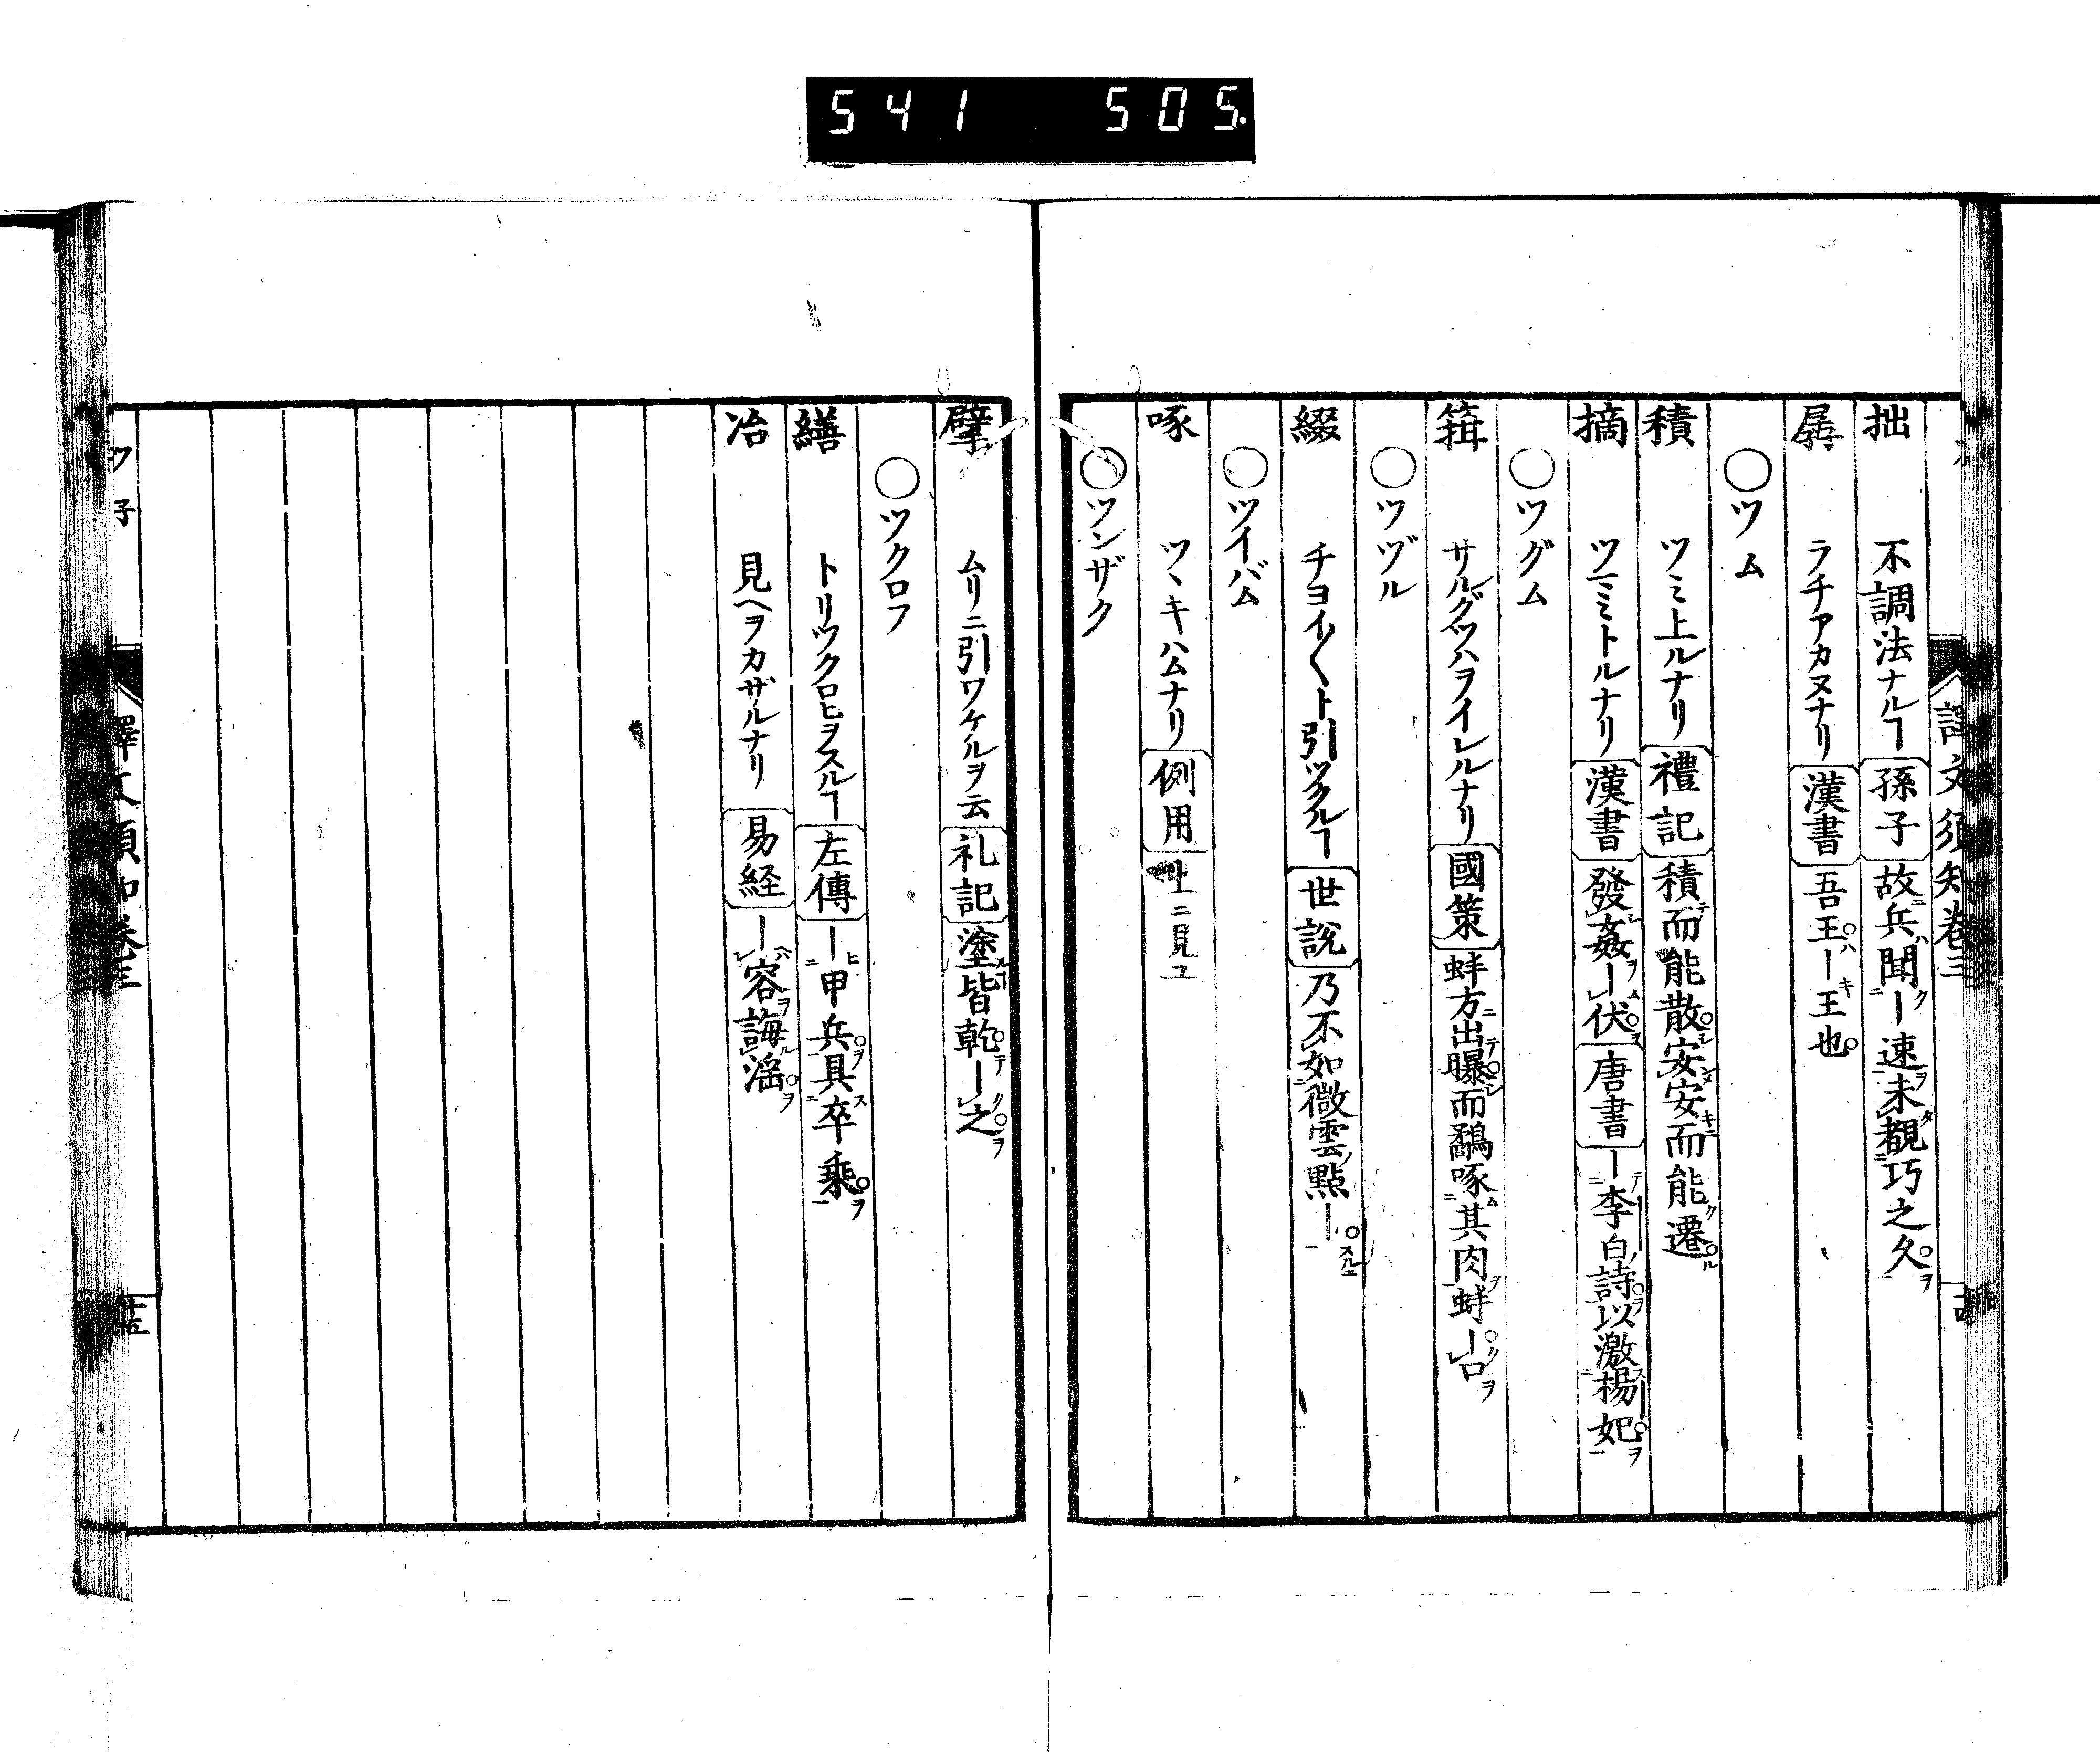 541 505
譯文須知卷三
拙 不調法ナルヿ 孫子 故兵聞ー速未覩巧之久
孱 ラチアカヌナリ 漢書 吾王ー王也
○ツム
積 ツミ上ルナリ 禮記 積而能散安安而能遷
摘 ツミトルナリ 漢書 發姦ー伏 唐書 ー李白詩以激楊妃
○ツグム
箝 サルグツハヲイレルナリ 國策 蚌方出曝而鷸啄其肉蚌ー口
○ツヅル
綴 チヨイ〱ト引ツクルヿ 世説 乃不如微雲點ー
○ツイバム
啄 ツヽキハムナリ 例用 上ニ見ユ
○ツンザク
擘 ムリニ引ワケルヲ云 礼記 塗皆乾ー之
○ツクロフ
繕 トリツクロヒヲスルヿ 左傳 ー甲兵具卒乘
冶 見ヘヲカザルナリ 易経 ー容誨淫